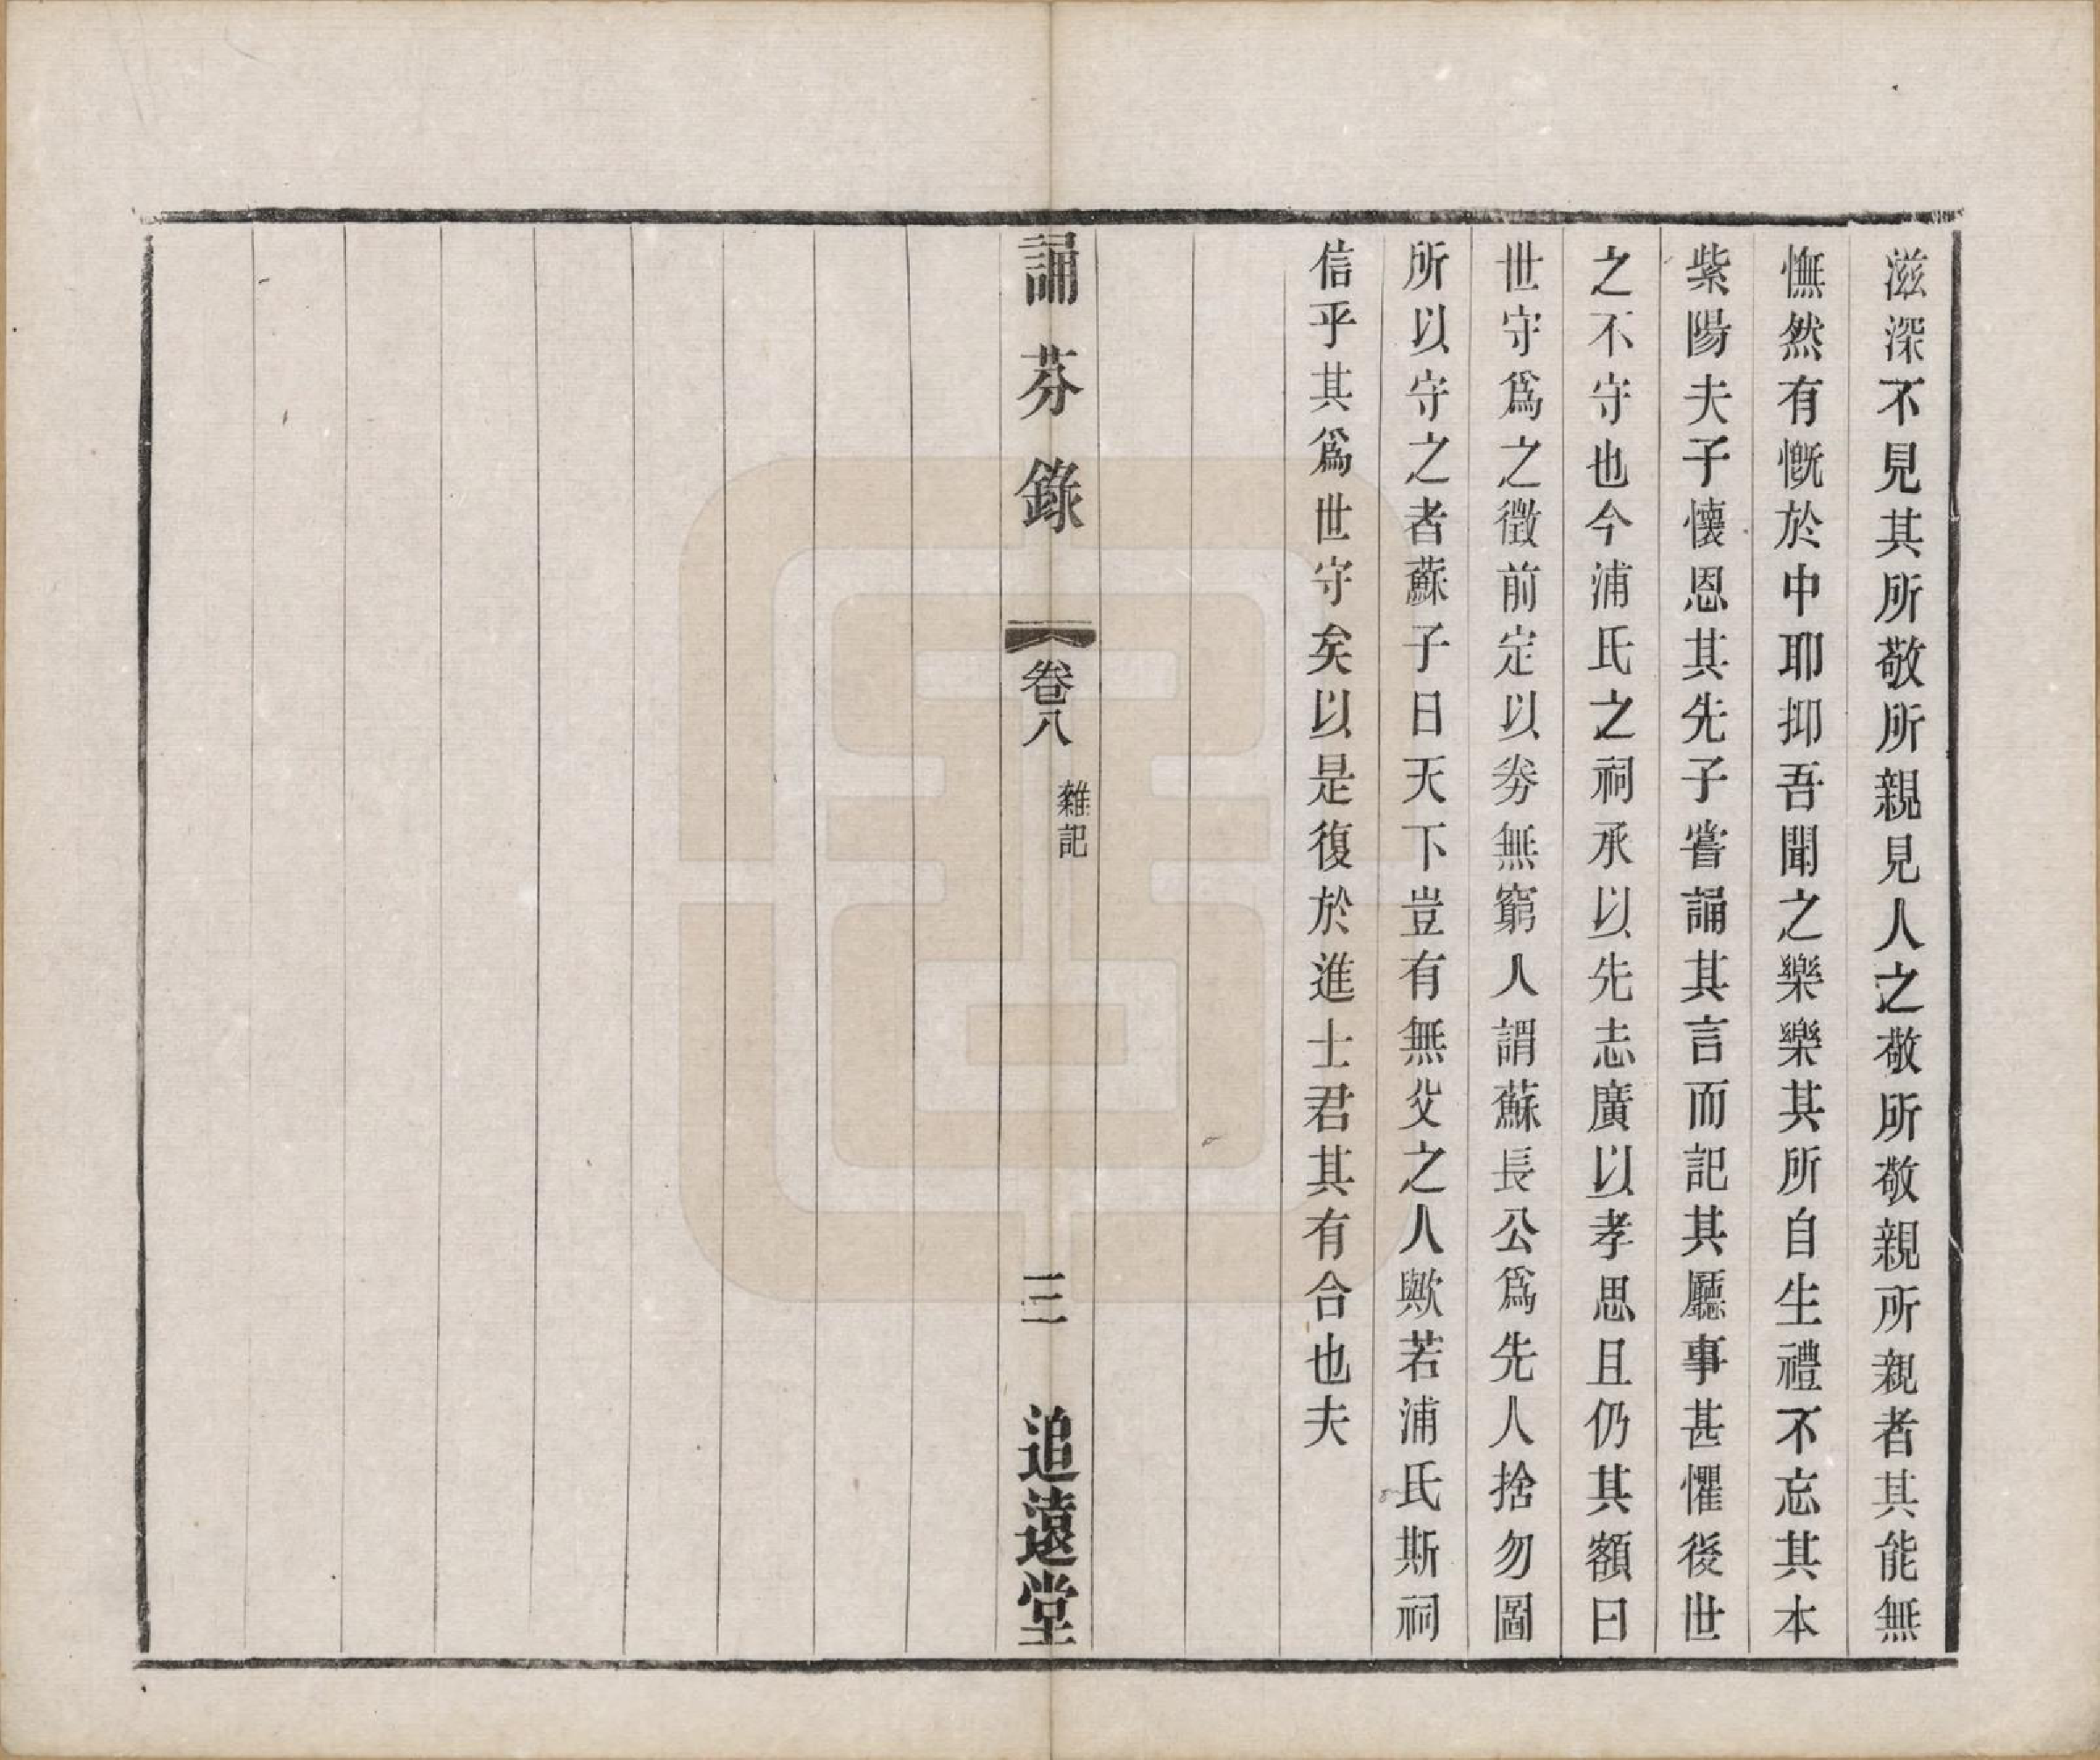 滋深不見其所敬所親見人之敬所敬親所親者其能無
憮然有慨於中耶抑吾聞之樂樂其所自生禮不忘其本
紫陽夫子懷恩其先子嘗誦其言而記其廳事甚懼後世
之不守也今浦氏之祠承以先志廣以孝思且仍其額曰
世守爲之徵前定以劵無窮人謂蘇長公爲先人捨勿圖
所以守之者蘇子曰天下豈有無父之人歟若浦氏斯祠
信乎其爲世守矣以是復於進士君其有合也夫
誦芬錄
卷八
雜記
三
追遠堂